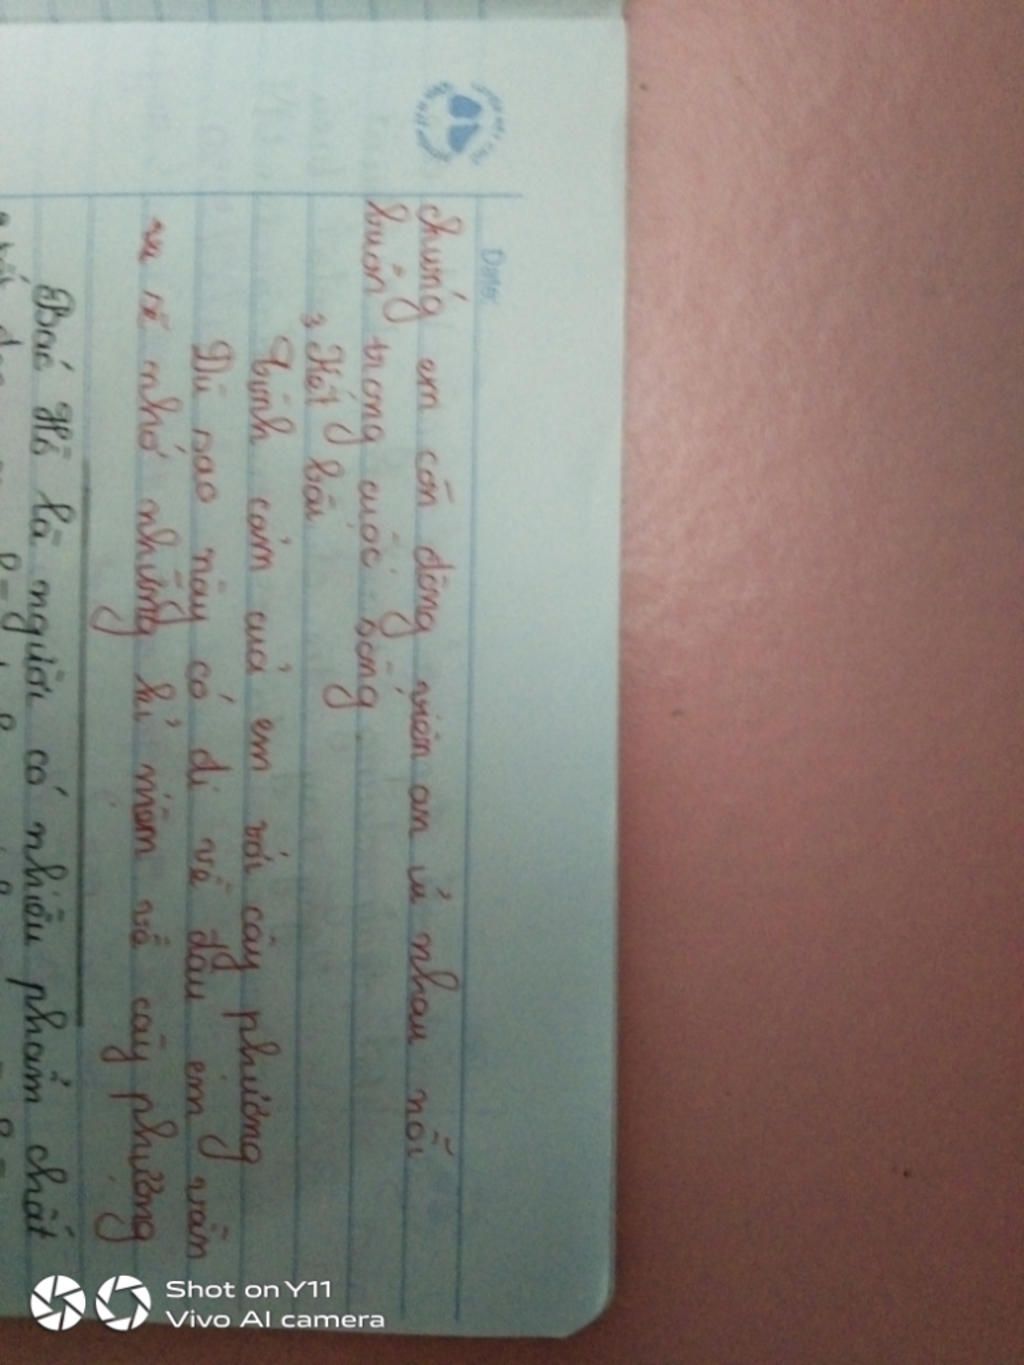 Date:
chúng em còn động viên an ủi nhau nỗi
buồn trong cuộc sống
3 Kết bài
Tình cảm của em với cây phượng
Dù sao này có đi về đâu em vẫn
sẽ nhớ những kỉ niệm về cây phượng
Bác Hồ là người có nhiều phẩm chất
Shot on Y11
Vivo AI camera